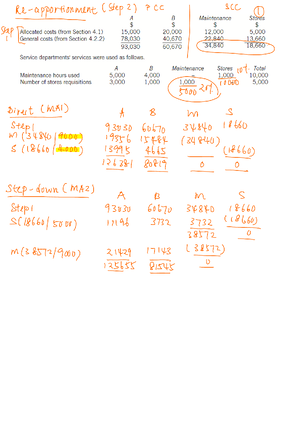 Re-apportionment (Step 2) 2 CC 2CC ①
A B Maintenance Stores
$ $ $ $
Step 1 Allocated costs (from Section 4.1) 15,000 20,000 12,000 5,000
General costs (from Section 4.2.2) 78,030 40,670 22,840 13,660
93,030 60,670 34,840 18,660
Service departments' services were used as follows.
A B Maintenance Stores 10% Total
Maintenance hours used 5,000 4,000 - 1,000 10,000
Number of stores requisitions 3,000 1,000 1,000 - 5,000
5000 20%
Direct (MA1) A B M S
Step 1 93030 60670 34840 18660
M (34840/9000) 19356 15484 (34840)
S (18660/4000) 13995 4665 (18660)
126381 80819 0 0
Step-down (MA2) A B M S
Step 1 93030 60670 34840 18660
S(18660/5000) 11196 3732 3732 (18660)
38572 0
M(38572/9000) 21429 17143 (38572)
125655 81545 0